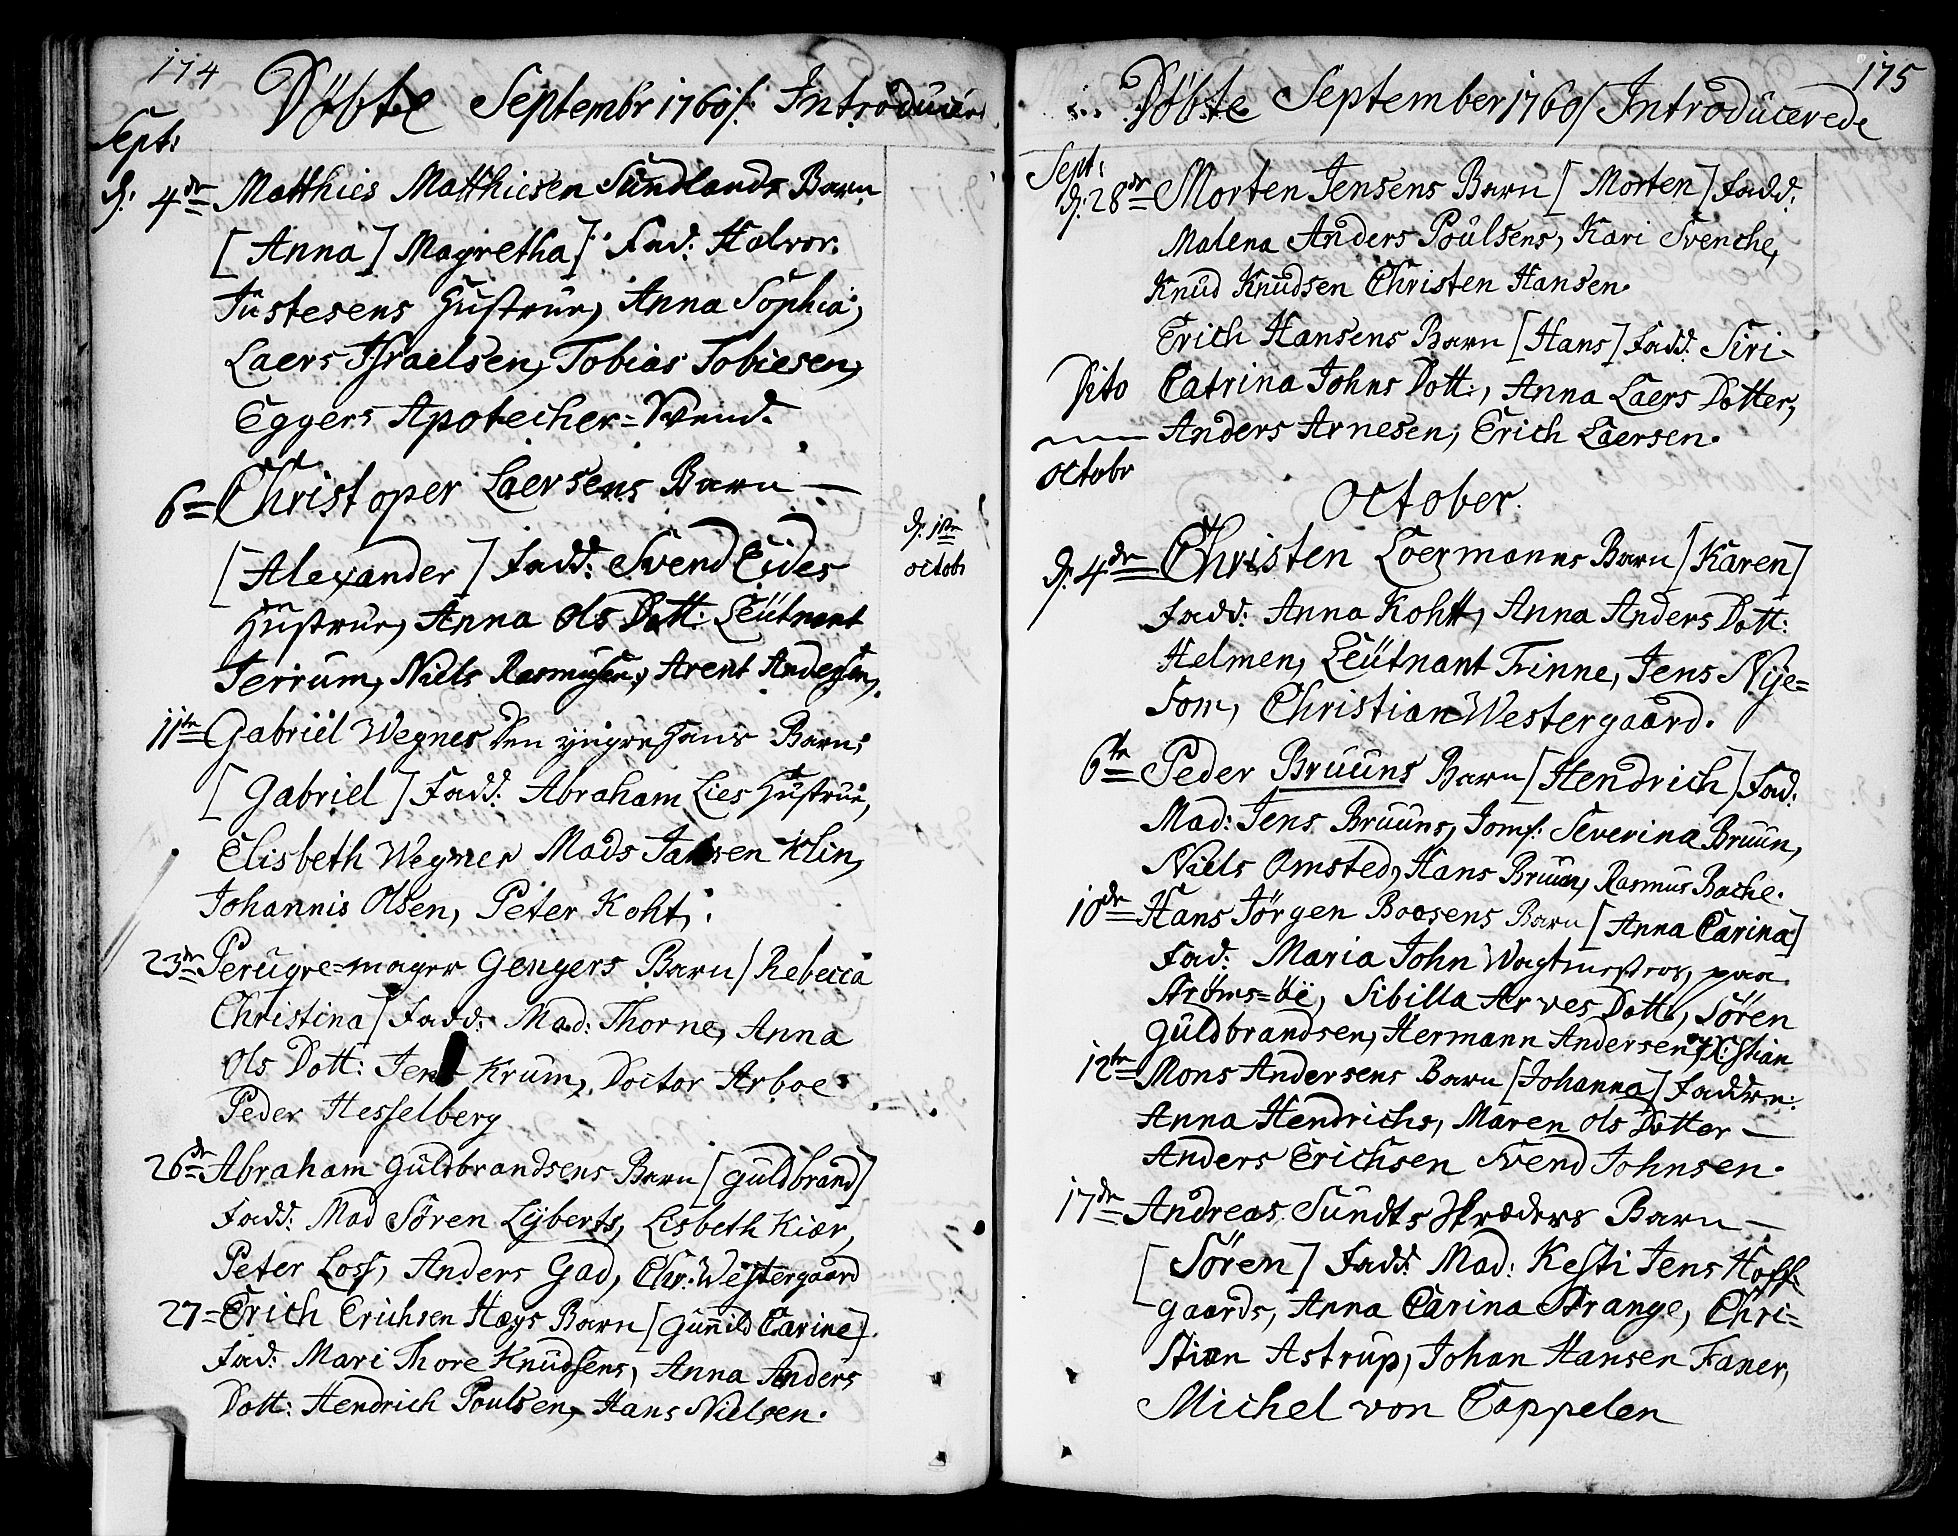 174
Döbte Septembr 1760/: Introducer
Sept:
d: 4de Matthies Matthiesen Sundlands Barn
[Anna] Magretha] Fad: Halvor
Justesens Hustrue, Anna Sophia,
Laers Israelsen, Tobias Tobiesen,
Eggers Apothecher=Svend.
6= Christoper Laersens Barn —
[Alexander] Fadd: Svend Eides
Hustrue, Anna Ols Dott: Leütnant
Jerrum, Niels Rasmusen, Arent Andersen,
d. 1ste
octob
11te Gabriel Wegners den yngre hans Barn
[Gabriel] Fadd: Abraham Lies Hustrue,
Elisbeth Wegner Mads Jansen Klin,
Johannis Olsen, Peter Koht,
23de Perugve=mager Gengers Barn [Rebecca
Christina] Fadd: Mad: Thorne, Anna
Ols Dott: Jens Krum, Doctor Arboe
Peder Hesselberg
26de Abraham Guldbrandsens Barn [Guldbrand]
Fadd: Mad Sören Lyberts, Lisbeth Kiær,
Peter Loss, Anders Gad, Chr: Westergaard
27= Erich Erichsen Hægs Barn [Gunnild Carine].
Fad: Mari Thore Knudsens, Anna Anders
Dott: Hendrich Poulsen, Hans Nielsen.
175
Döbte September 1760/ Introducerede
Sept:
d: 28de Morten Jensens Barn [Morten] Fadd:
Malena Anders Poulsens, Kari Svenche,
Knud Knudsen Christen Hansen.
Erich Hansens Barn [Hans] Fadd: Siri
Dito Catrina Johns Dott:, Anna Laers Dotter,
Anders Arnesen, Erich Laersen.
octobr
October.
d: 4de Christen Loermanns Barn [Karen]
Fadd: Anna Koht, Anna Anders Dott:
Helmen, Leütnant Trinne, Jens Nye=
som, Christian Westergaard.
6te Peder Bruuns Barn [Hendrich] Fad:
Mad: Jens Bruuns, Jomf: Severina Bruun,
Niels Omsted, Hans Bruun, Rasmus Bache.
10de Hans Jörgen Boosens Barn [Anna Carina]
Fad: Maria John Wagtmesters, paa
Ströms=öe, Sibilla Arves Dott:, Sören
Guldbrandsen, Hermann Andersen, og X:stian
12te Mons Andersens Barn [Johanna] Faddre:
Anna Hendrichs, Maren Ols Dotter —
Anders Erichsen Svend Johnsen.
17de Andreas Sundts Skræders Barn —
[Sören] Fadd: Mad: Kesti Jens Hoff=
gaards, Anna Carina Strange, Chri=
stian Astrup, Johan Hansen Faner,
Michel von Cappelen